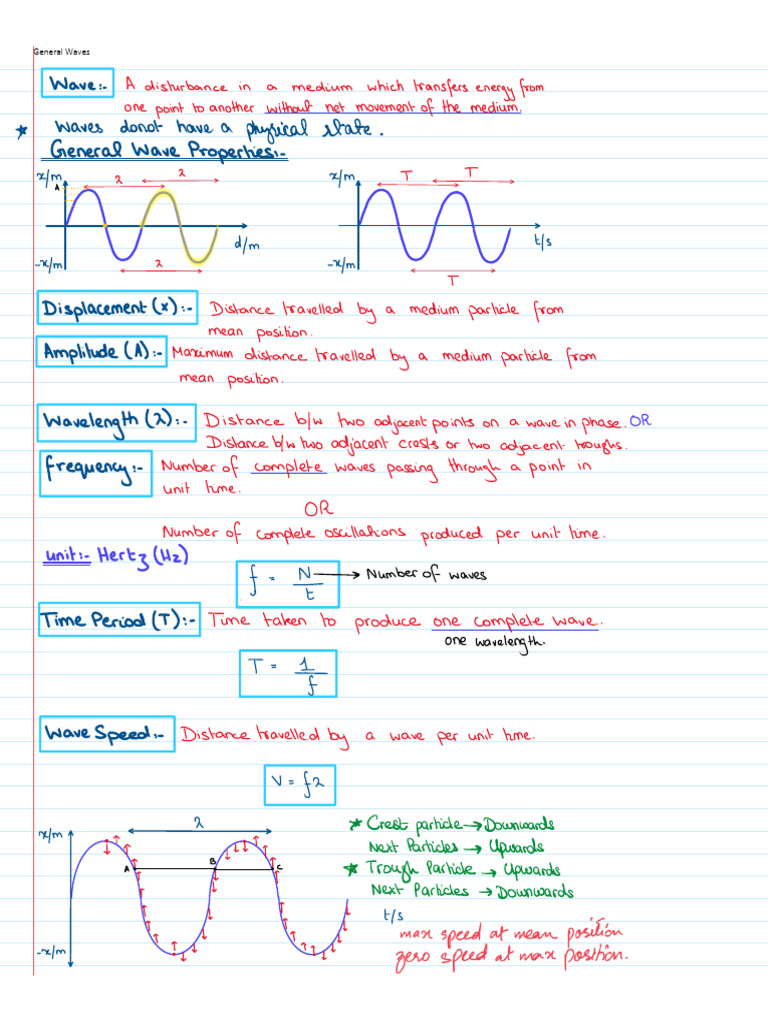 General Waves
Wave:- A disturbance in a medium which transfers energy from
one point to another without net movement of the medium.
* Waves donot have a physical state.
General Wave Properties:-
x/m A λ λ x/m T T
d/m t/s
-x/m λ -x/m T
Displacement (x):- Distance travelled by a medium particle from
mean position.
Amplitude (A):- Maximum distance travelled by a medium particle from
mean position.
Wavelength (λ):- Distance b/w two adjacent points on a wave in phase. OR
Distance b/w two adjacent crests or two adjacent troughs.
frequency:- Number of complete waves passing through a point in
unit time.
OR
Number of complete oscillations produced per unit time.
unit:- Hertz (Hz)
f = N/t → Number of waves
Time Period (T):- Time taken to produce one complete wave.
one wavelength.
T = 1/f
Wave Speed:- Distance travelled by a wave per unit time.
V = fλ
x/m λ
A B C
-x/m
* Crest particle → Downwards
Next Particles → Upwards
* Trough Particle → Upwards
Next Particles → Downwards
t/s
max speed at mean position
zero speed at max position.